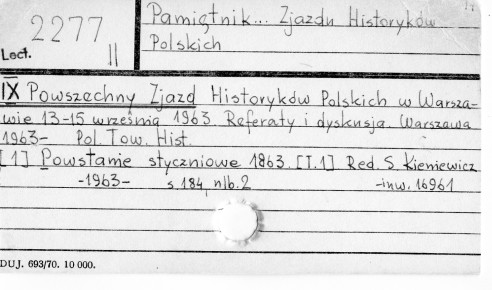 Pamiętnik... Zjazdu Historyków
Polskich
2277
Lect. II
IX Powszechny Zjazd Historyków Polskich w Warsza-
wie 13-15 września 1963. Referaty i dyskusja. Warszawa
1963- Pol. Tow. Hist.
[1] Powstanie styczniowe 1863. [T.1] Red. S. Kieniewicz
-1963- s. 184, nlb. 2 -inw. 16961
DUJ. 693/70. 10 000.